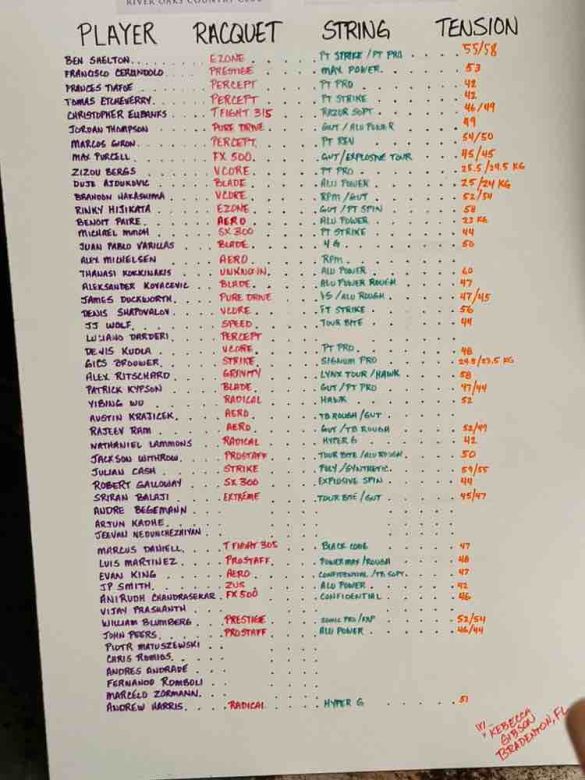 RIVER OAKS COUNTRY CLUB
PLAYER RACQUET STRING TENSION
BEN SHELTON EZONE PT STRIKE/PT PRO 55/58
FRANCISCO CERUNDOLO PRESTIGE MAX POWER 53
FRANCES TIAFOE PERCEPT PT PRO 42
TOMAS ETCHEVERRY PERCEPT PT STRIKE 42
CHRISTOPHER EUBANKS T FIGHT 315 RAZOR SOFT 46/49
JORDAN THOMPSON PURE DRIVE GUT/ALU POWER 49
MARCOS GIRON PERCEPT PT REV 54/50
MAX PURCELL FX 500 GUT/EXPLOSIVE TOUR 45/45
ZIZOU BERGS VCORE PT PRO 25.5/24.5 KG
DUJE AJDUKOVIC BLADE ALU POWER 25/24 KG
BRANDON NAKASHIMA VCORE RPM/GUT 52/54
RINKY HIJIKATA EZONE GUT/PT SPIN 58
BENOIT PAIRE AERO ALU POWER 23 KG
MICHAEL MMOH SX 300 PT STRIKE 44
JUAN PABLO VARILLAS BLADE 4G 50
ALEX MICHELSEN AERO RPM
THANASI KOKKINAKIS UNKNOWN ALU POWER 60
ALEKSANDER KOVACEVIC BLADE ALU POWER ROUGH 47
JAMES DUCKWORTH PURE DRIVE VS/ALU ROUGH 47/45
DENIS SHAPOVALOV VCORE PT STRIKE 56
JJ WOLF SPEED TOUR BITE 44
LUCIANO DARDERI PERCEPT
DENIS KUDLA VCORE PT PRO 48
GIJS BROUWER STRIKE SIGNUM PRO 24.5/23.5 KG
ALEX RITSCHARD GRAVITY LYNX TOUR/HAWK 58
PATRICK KYPSON BLADE GUT/PT PRO 47/44
YIBING WU RADICAL HAWK 52
AUSTIN KRAJICEK AERO TB ROUGH/GUT
RAJEEV RAM AERO GUT/TB ROUGH 52/49
NATHANIEL LAMMONS RADICAL HYPER G 42
JACKSON WITHROW PROSTAFF TOUR BITE/ALU ROUGH 50
JULIAN CASH STRIKE POLY/SYNTHETIC 59/55
ROBERT GALLOWAY SX 300 EXPLOSIVE SPIN 44
SRIRAN BALAJI EXTREME TOUR BITE/GUT 45/47
ANDRE BEGEMANN
ARJUN KADHE
JEEVAN NEDUNCHEZHIYAN
MARCUS DANIELL T FIGHT 305 BLACK CODE 47
LUIS MARTINEZ PROSTAFF POWERMAX/ROUGH 48
EVAN KING AERO CONFIDENTIAL/TB SOFT 47
JP SMITH ZUS ALU POWER 42
ANIRUDH CHANDRASEKAR FX 500 CONFIDENTIAL 46
VIJAY PRASHANTH
WILLIAM BLUMBERG PRESTIGE SONIC PRO/FXP 52/54
JOHN PEERS PROSTAFF ALU POWER 46/44
PIOTR MATUSZEWSKI
CHRIS ROMIOS
ANDRES ANDRADE
FERNANDO ROMBOLI
MARCELO ZORMANN
ANDREW HARRIS RADICAL HYPER G 51
REBECCA
GIBSON
BRADENTON, FL